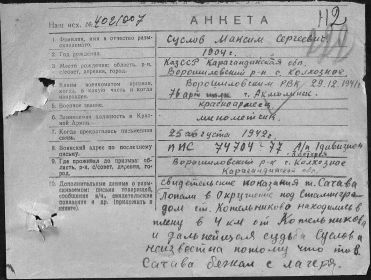 112
Наш исх. № 402/007
АНКЕТА
1. Фамилия, имя и отчество разыскиваемого.
Суслов Максим Сергеевич
2. Год рождения.
1904 г.
3. Место рождения: область, р-н, с/совет, деревня, город.
КазССР Карагандинская обл.
Ворошиловский р-н с. Колхозное
4. Каким военкоматом призван, когда, в какую часть и когда направлен.
Ворошиловским РВК, 29.12.1941 г.
г. Акмолинск
5. Военное звание.
красноармеец
6. Занимаемая должность в Красной Армии.
минометчик
7. Когда прекратилась письменная связь.
25 августа 1942 г.
8. Воинский адрес по последнему письму.
ППС 74704-77
9. Где проживал до призыва: область, р-н, с/совет, деревня, город.
Ворошиловский р-н с Колхозное
Карагандинской обл.
10. Дополнительные данные о разыскиваемом
свидетельские показания т. Сатава
попали в Окружение под Сталинградом ст. Котельниково находились в
плену в 4 км от Котельниково
и дальнейшая судьба Суслов
неизвестна потому что тов.
Сатава бежал с лагеря.